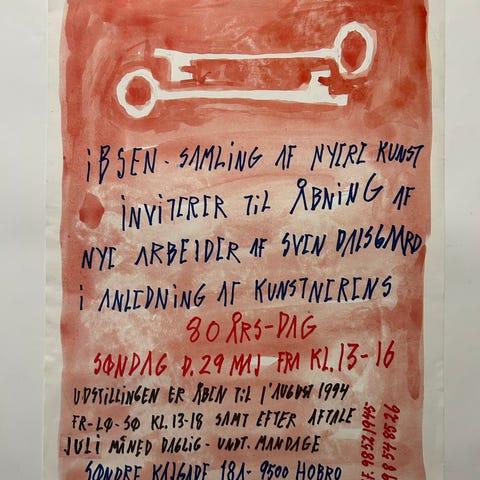 iBSEN - SAMLING AF NYERE KUNST
INVITERER TIL ÅBNING AF
NYE ARBEJDER AF SVEN DALSGAARD
i ANLEDNING AF KUNSTNERENS
80 ÅRS-DAG
SØNDAG D. 29 MAJ FRA KL. 13-16
UDSTILLINGEN ER ÅBEN TIL 1' AUGUST 1994
FR-LØ-SØ KL. 13-18 SAMT EFTER AFTALE
JULI MÅNED DAGLIG - UNDT. MANDAGE
SØNDRE KAJGADE 18A - 9500 HOBRO
98521945
98548526